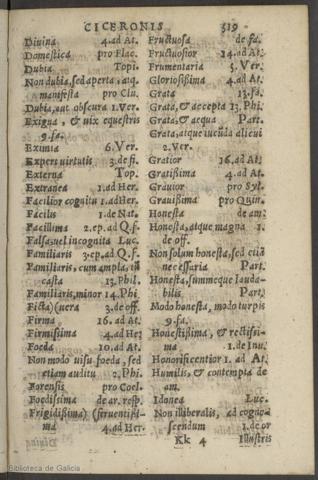 CICERONIS 519
Divina 4.ad At.
Domestica pro Flac.
Dubia Topi.
Non dubia, sed aperta, atq.
manifesta pro Clu.
Dubia, aut obscura 1.Ver.
Exigua, & uix equestris
9.fa.
Eximia 6.Ver.
Expers uirtutis 3.de fi.
Externa Top.
Extranea 1.ad Her.
Facilior cognitu 1.adHer.
Facilis 1.de Nat.
Facillima 2.ep.ad Q.f.
Falsa, uel incognita Luc.
Familiaris 3.ep.ad Q.f.
Familiaris, cum ampla, tũ
casta 13.Phil.
Familiaris, minor 14.Phi
Ficta)(uera 3.de off.
Firma 16.ad At.
Firmißima 4.ad He.
Foeda 10.ad At.
Non modo uisu foeda, sed
etiam auditu 2.Phi.
Forensis pro Coel.
Foedißima de ar.resp.
Frigidißima)(feruentißi-
ma 4.ad Her.
Fructuosa de fa.
Fructuosior 14.ad At.
Frumentaria 5.Ver.
Gloriosißima 4.ad At.
Grata 13.fa.
Grata, & accepta 13.Phi.
Grata, & æqua Part.
Grata, atque iucũda alicui
2.Ver.
Gratior 16.ad At.
Gratißima 4.ad At.
Grauior pro Syl.
Grauißima pro Quin.
Honesta de am.
Honesta, atque magna 1.
de off.
Non solum honesta, sed etiã
necessaria Part.
Honesta, summeque lauda-
bilis Part.
Modo honesta, modo turpis
9.fa.
Honestißima, & rectißi-
ma 1.de Inu.
Honorificentior 1.ad At.
Humilis, & contempta de
am.
Idonea Luc.
Non illiberalis, ad cogno-
scendum 1.de or
Kk 4 Illustris
Biblioteca de Galicia